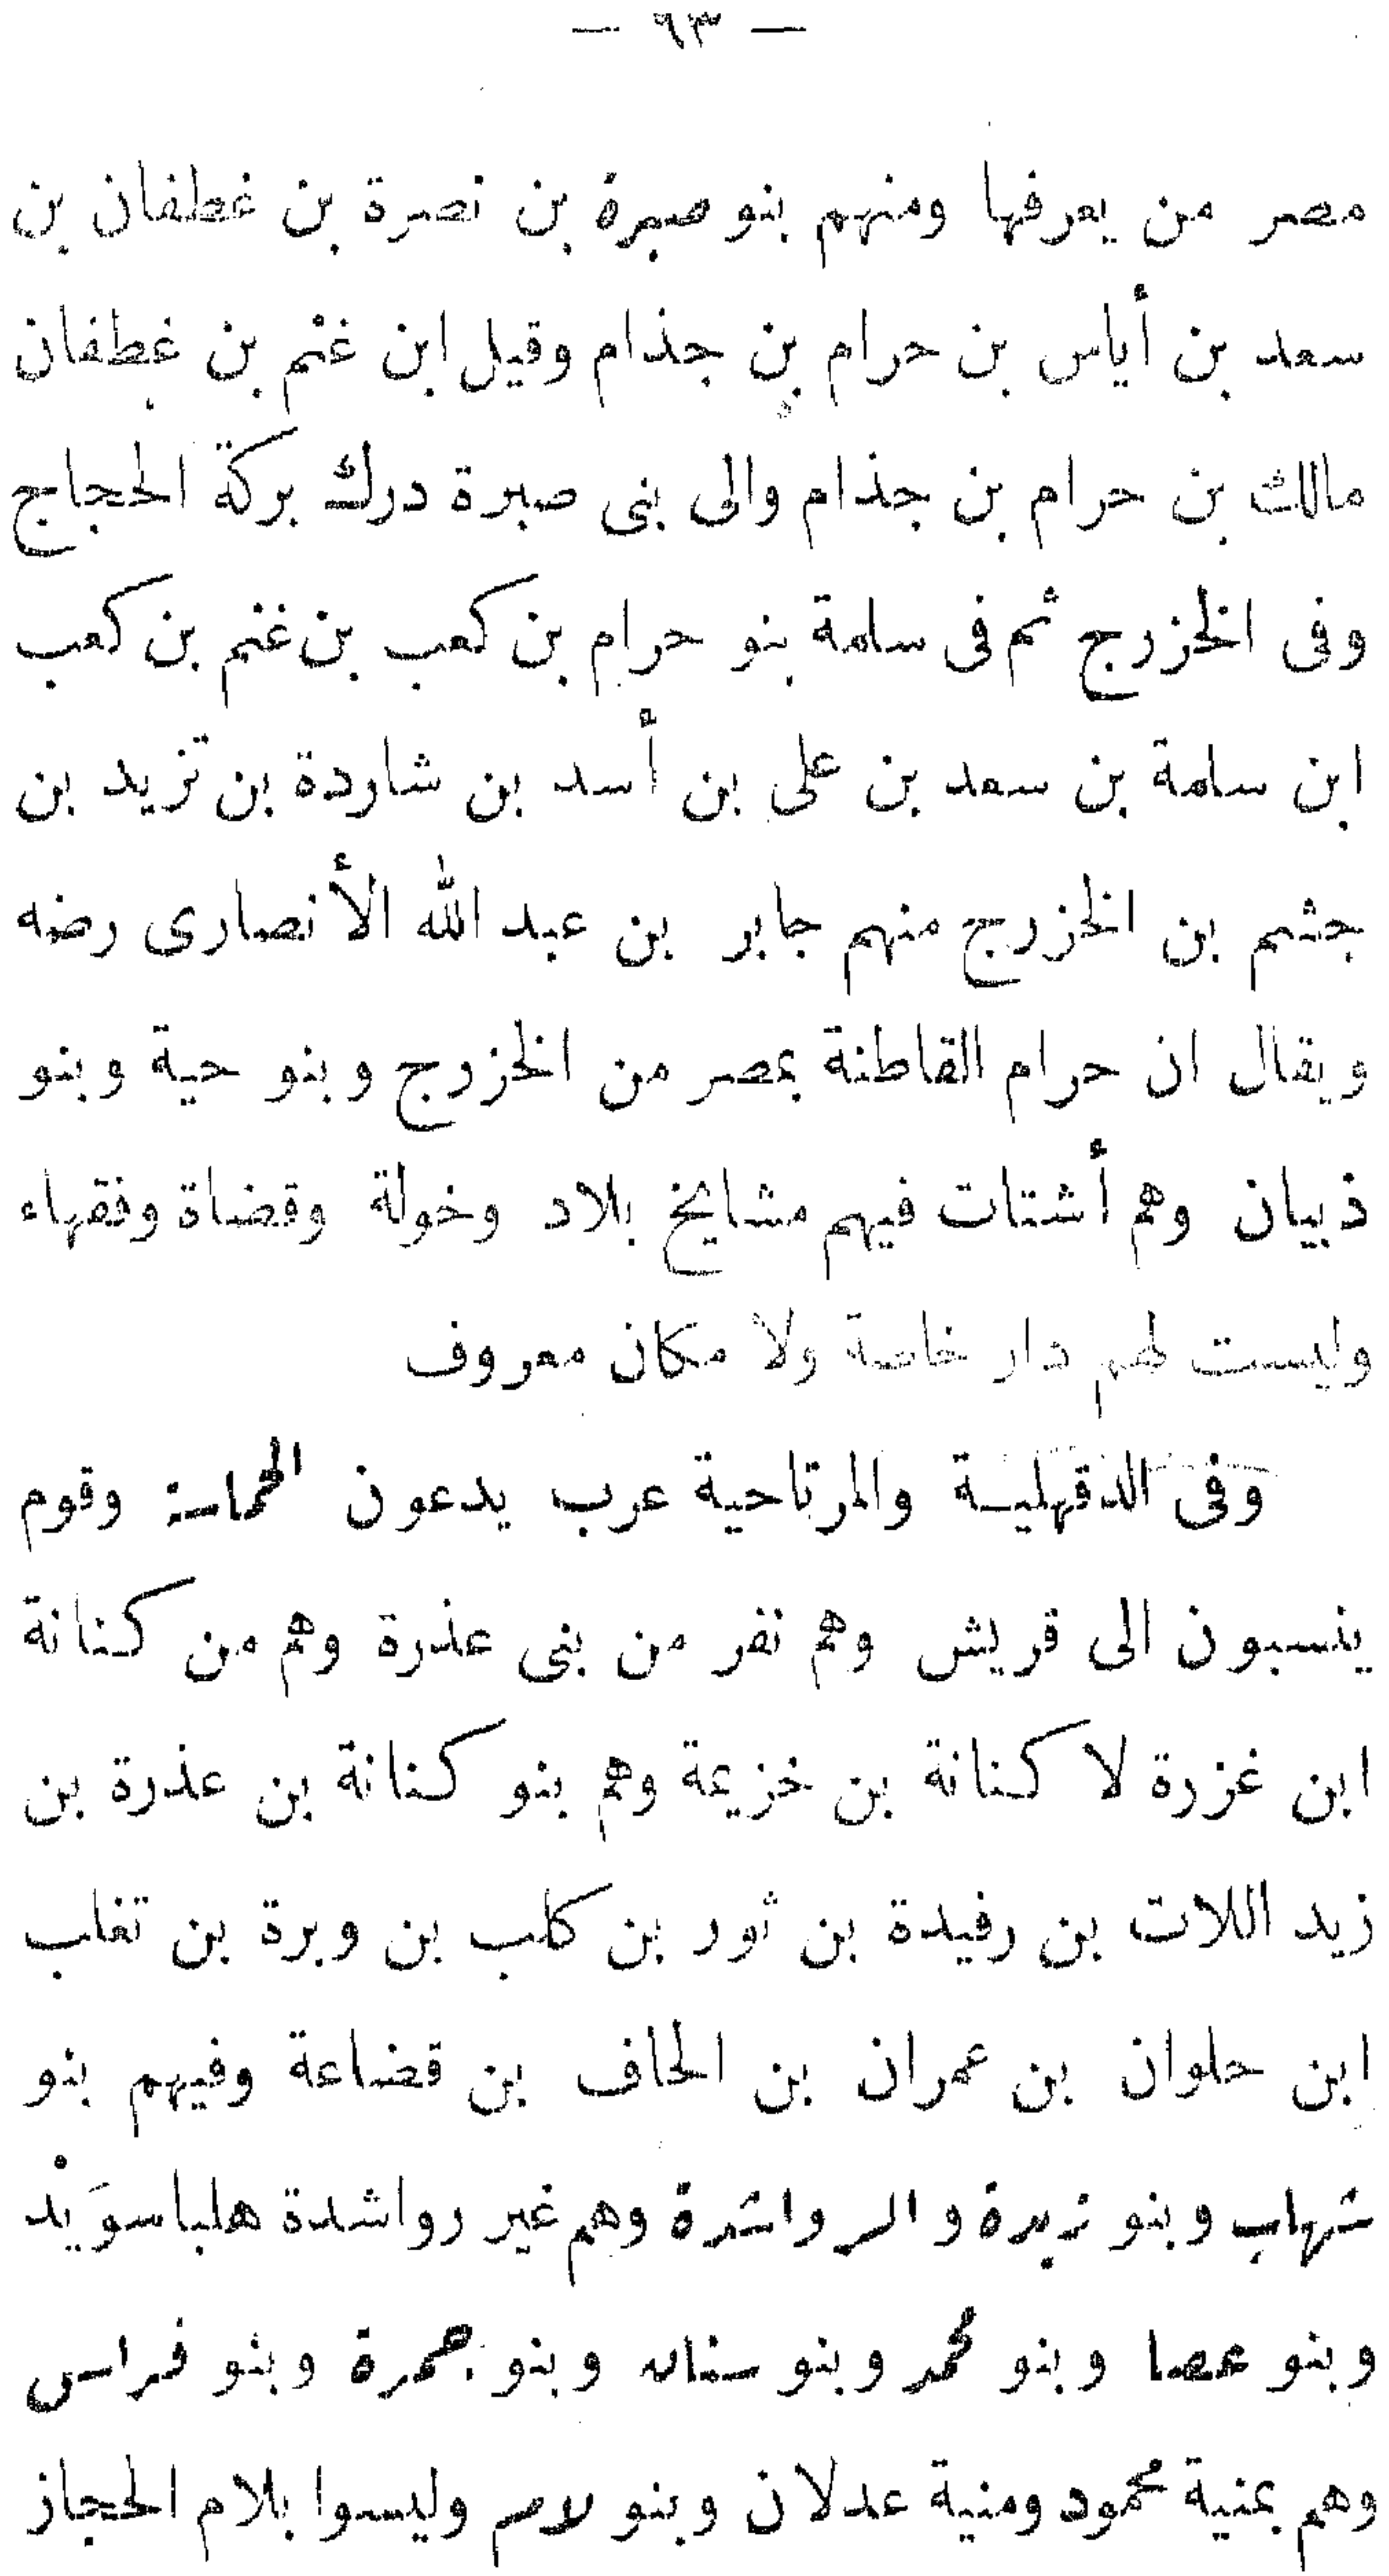 — ٦٣ —
مصر من يعرفها ومنهم بنو صبرة بن نصرة بن غطفان بن
سعد بن أياس بن حرام بن جذام وقيل ابن غنْم بن غطفان
مالك بن حرام بن جذام والى بنى صبرة درك بركة الحجاج
وفى الخزرج ثم فى سلمة بنو حرام بن كعب بن غنم بن كعب
ابن سلمة بن سعد بن على بن أسد بن شاردة بن تزيد بن
جشم بن الخزرج منهم جابر بن عبد الله الأنصارى رضه
ويقال ان حرام القاطنة بمصر من الخزرج وبنو حية وبنو
ذبيان وهم أشتات فيهم مشايخ بلاد وخولة وقضاة وفقهاء
وليست لهم دار خاصة ولا مكان معروف
وفى الدقهلية والمرتاحية عرب يدعون وقوم
ينسبون الى قريش وهم نفر من بنى عذرة وهم من كنانة
ابن غزرة لا كنانة بن خزيمة وهم بنو كنانة بن عذرة بن
زيد اللات بن رفيدة بن ثور بن كلب بن وبرة بن تغلب
ابن حلوان بن عمران بن الحاف بن قضاعة وفيهم بنو
شهاب وبنو والرواشدة وهم غير رواشدة هلباسوَيْد
وبنو عصا وبنو محمد وبنو سنان وبنو حمرة وبنو فراس
وهم بمنية محمود ومنية عدلان وبنو لام وليسوا بلام الحجاز